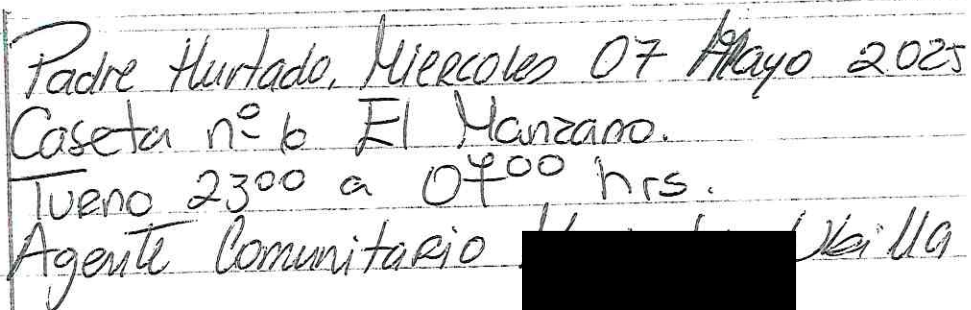 Padre Hurtado, Miercoles 07 Mayo 2025
Caseta nº 6 El Manzano.
Tueno 23⁰⁰ a 07⁰⁰ hrs.
Agente Comunitario Ubilla